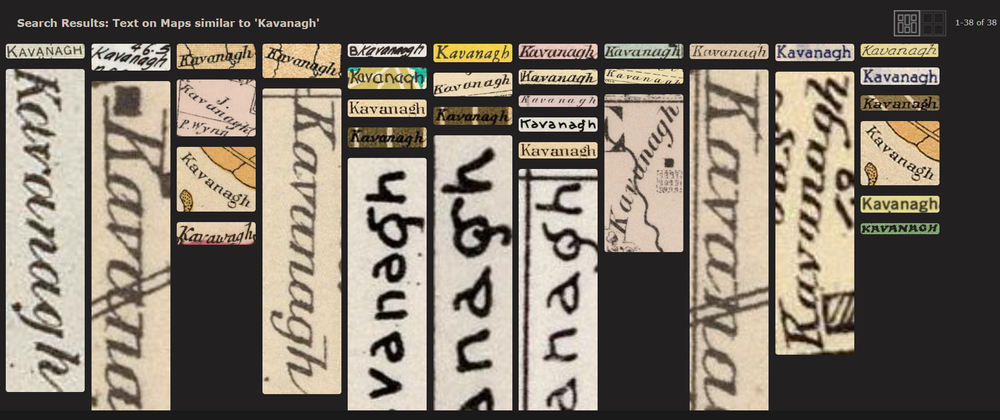 Search Results: Text on Maps similar to 'Kavanagh'
1-38 of 38
KAVANAGH
46.5
Kavanagh
Kavanagh
Kavanagh
B.Kavanagh
Kavanagh
Kavanagh
Kavanagh
Kavanagh
Kavanagh
Kavanagh
Kavanagh
Kavanagh
Kavanagh
Kavanagh
Kavanagh
Kavanagh
J.
Kavanagh
P. Wynn
Kavanagh
Kavanagh
Kavanagh
Kavanagh
Kavanagh
Kavanagh
Kavanagh
Kavanagh
Kavanagh
Kavanagh
Kavanagh
Kavanagh
Kavanagh
KAVANAGH
Kavanagh
Kavana
Kavanagh
vanagh
anagh
anagh
Kavanagh
Kavana
Kavanagh